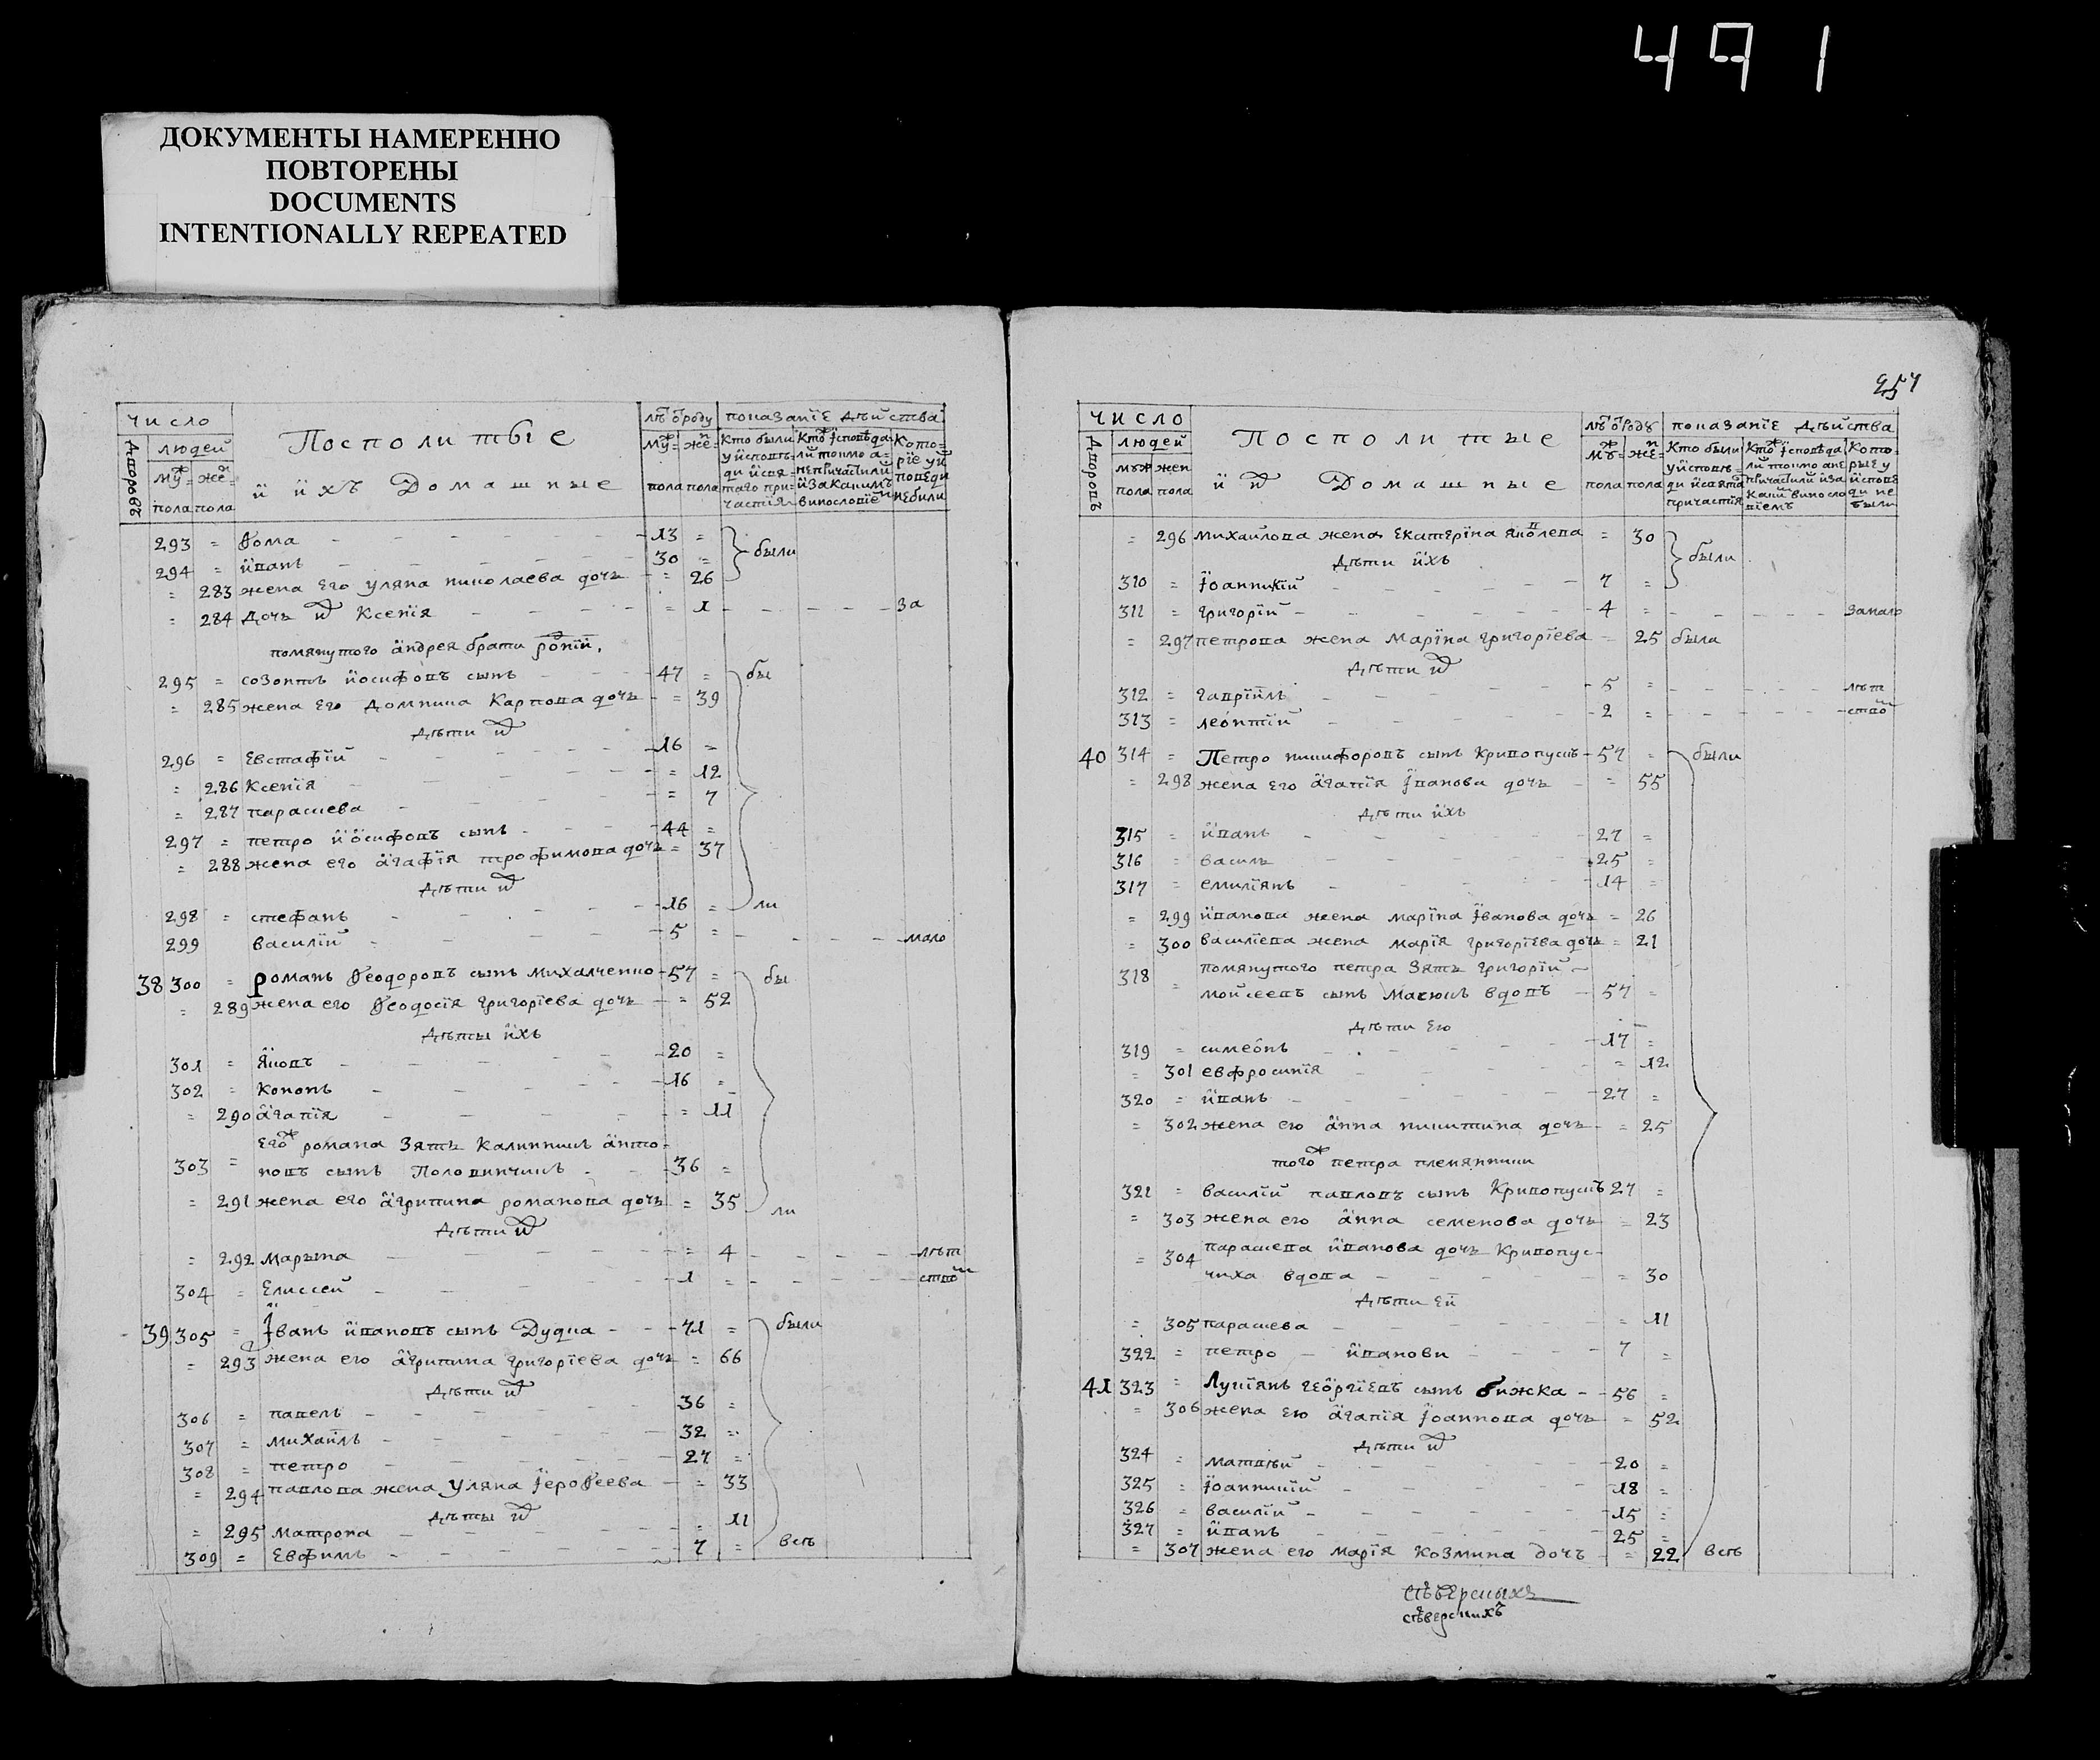 491
ДОКУМЕНТЫ НАМЕРЕННО
ПОВТОРЕНЫ
DOCUMENTS
INTENTIONALLY REPEATED
число
Дворовъ
людей
муж= пола
жен= пола
Посполитые
и ихъ Домашные
лѣтъ ѿ роду
муж= пола
жен= пола
показанїе дѣйства
Кто были у исповѣди и святаго причастїя
Кто исповѣдали токмо а не причастили и за какимъ винословїем
Которїе у исповеди небили
293 = Ѳома - 13 =
294 = иванъ - 30 =
были
= 283 жена его уляна николаева дочь - = 26
= 284 Дочь их Ксенїя - = 1 - за
помянутого андрея брати роднїи,
295 = созонтъ иосифовъ сынъ - 47 = бы
= 285 жена его Домникиа Карпова дочь - = 39
Дѣти их
296 = Евстафїй - 16 =
= 286 Ксенїя - = 12
= 287 парасцева - = 7
297 = петро иосифовъ сынъ - 44 =
= 288 жена его агафїя трофимова дочь = 37
Дѣти их
298 = стефанъ - 16 = ли
299 василїй - 5 = - мало
38 300 = романъ Ѳеодоровъ сынъ михалченко - 57 = бы
= 289 жена его Ѳеодосїя григорїева дочь - = 52
Дѣты ихъ
301 = Яковъ - 20 =
302 = Кононъ - 16 =
= 290 агапїя - = 11
Его ж романа Зять Калинникъ анто-
303 = новъ сынъ Половинчикъ - 36 =
= 291 жена его агрипина романова дочь = 35 ли
Дѣти их
= 292 марына - = 4 - лѣт
304 = Елиссей - 1 = - ством
39 305 = Іванъ ивановъ сынъ Дудка - 71 = были
= 293 жена его агрипина григорїева дочь = 66
Дѣти их
306 = павелъ - 36 =
307 = михаилъ - 32 =
308 = петро - 27 =
= 294 павлова жена уляна їероѲеева - = 33
Дѣты их
= 295 матрона - = 11
309 = Евфимъ - 7 = всѣ
число
Дворовъ
людей
муж пола
жен пола
Посполитые
и их Домашные
лѣтъ ѿ роду
муж= пола
жен= пола
показанїе дѣйства
Кто были у исповѣди и святаго причастїя
Кто исповѣдали токмо а не причастили и за каким винословїемъ
Которые у исповеди не были
= 296 михаилова жена Екатерїна Яковлева = 30
Дѣти ихъ
были
310 = їоанникїй - 7 =
311 = григорїй - 4 = - замало
= 297 петрова жена марїна григорїева - 25 была
Дѣти их
312 = гаврїилъ - 5 = - лѣт
313 = леонтїй - 2 = - ством
40 314 = Петро никифоровъ сынъ Кривопускъ - 57 = были
= 298 жена его агапїя їванова дочь - = 55
Дѣти ихъ
315 = иванъ - 27 =
316 = василь - 25 =
317 = емилїянъ - 14 =
= 299 иванова жена марїна їванова дочь = 26
= 300 василїева жена марїя григорїева дочь = 21
318 помянутого петра Зять григорїй -
= мойсеевъ сынъ вдовъ - 57 =
Дѣти его
319 = симеонъ - 17 =
= 301 евфросинїя - = 12
320 = иванъ - 27 =
= 302 жена его анна никитина дочь - = 25
того ж петра племянники
321 = василїй павловъ сынъ Кривопускъ 27 =
= 303 жена его анна семенова дочь - = 23
= 304 парасцева иванова дочь Кривопус-
чиха вдова - = 30
Дѣти ей
= 305 парасцева - = 11
322 = петро - иванови - 7 =
41 323 = Лукїянъ георгїевъ сынъ бижка - 56 =
= 306 жена его агапїя їоаннова дочь - = 52
Дѣти их
324 = матѳѣй - 20 =
325 = їоанникїй - 18 =
326 = василїй - 15 =
327 = иванъ - 25 =
= 307 жена его марїя козмина дочь - = 22 всѣ